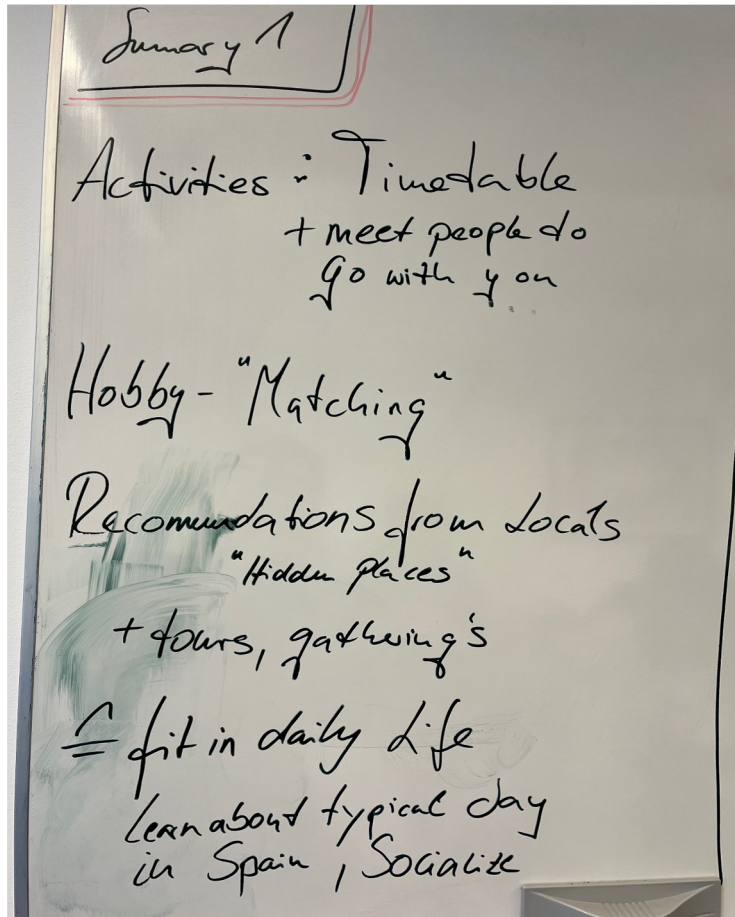 Sumary 1
Activities: Timetable
+ meet people to
go with you
Hobby- "Matching"
Recomendations from Locals
"Hidden places"
+ tours, gathering's
≙ fit in daily Life
learn about typical day
in Spain, Socialize